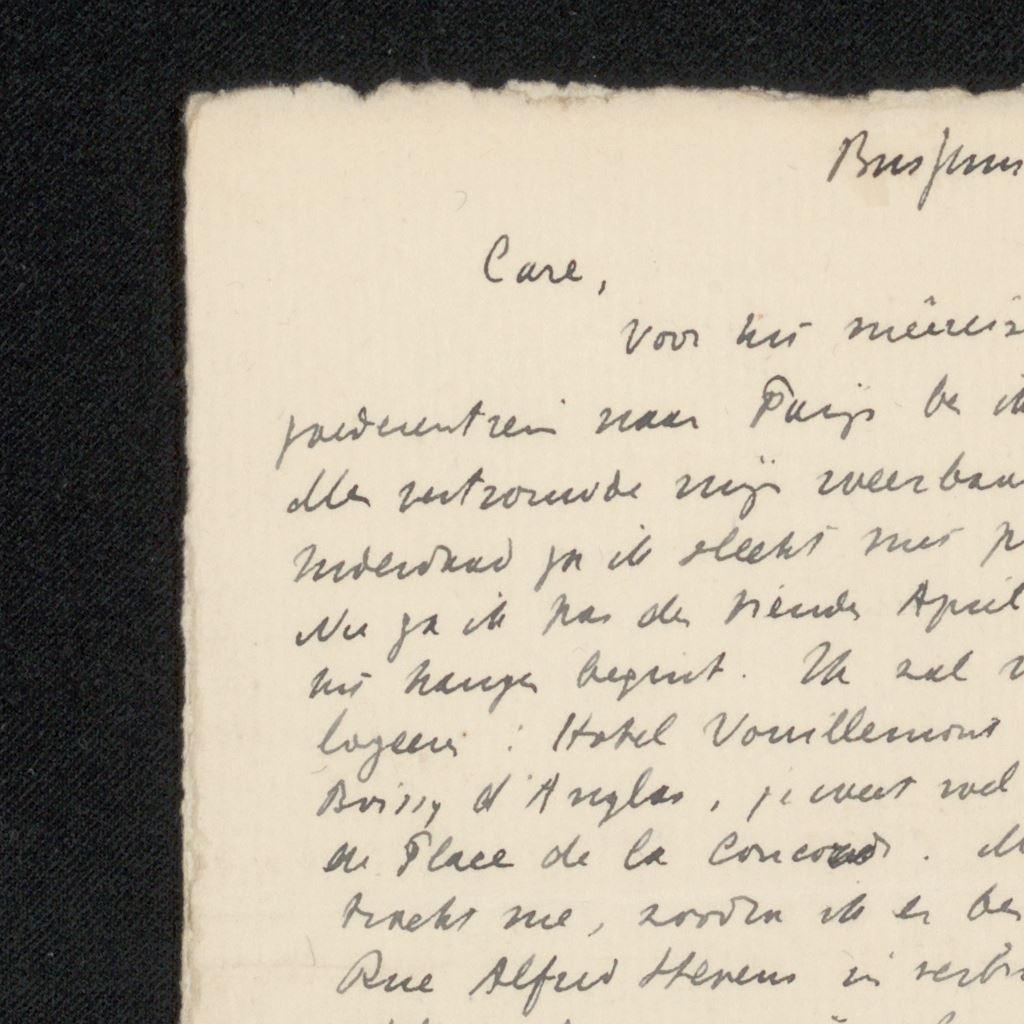 Bussum
Care,
Voor het
goederentrein naar Parijs be ik
Men vertrouwde mij weer
Inderdaad ga ik slechts met
Nu ga ik pas de tiende April
het hangen begint. Ik zal
logeeren : Hotel Vouillemont
Boissy d'Anglas, je weet wel
de Place de la Concorde. M
tracht me, zoodra ik er ben
Rue Alfred Stevens in verbi